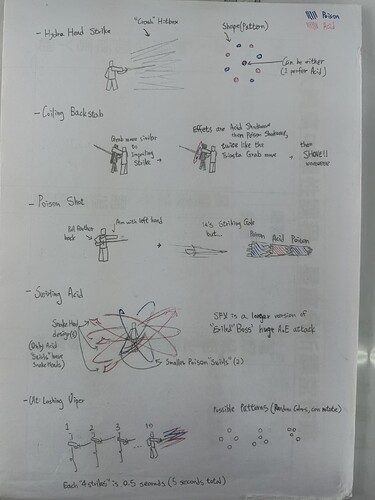 Poison
Acid
- Hydra Head Strike
"Crush" Hitbox
Shape (Pattern)
Can be either
(I prefer Acid)
- Coiling Backstab
Grab move similar
to
Impaling
Strike
Effects are Acid Shockwave
then Poison Shockwave,
twice like the
Grab move
then
- Poison Shot
Pull Feather
back
Aim with left hand
Striking Gale
but...
Poison Acid Poison
- Swirling Acid
Snake Head
design(s)
(Only Acid
"Swirls" have
Snake Heads)
Smaller Poison "Swirls" (2)
SFX is a larger version of
Boss' huge AoE attack
- Ult: Lashing Viper
1 2 3 ... 10
Possible Patterns (Random Colors, can rotate)
Each "4 strikes" is 0.5 seconds (5 seconds total)